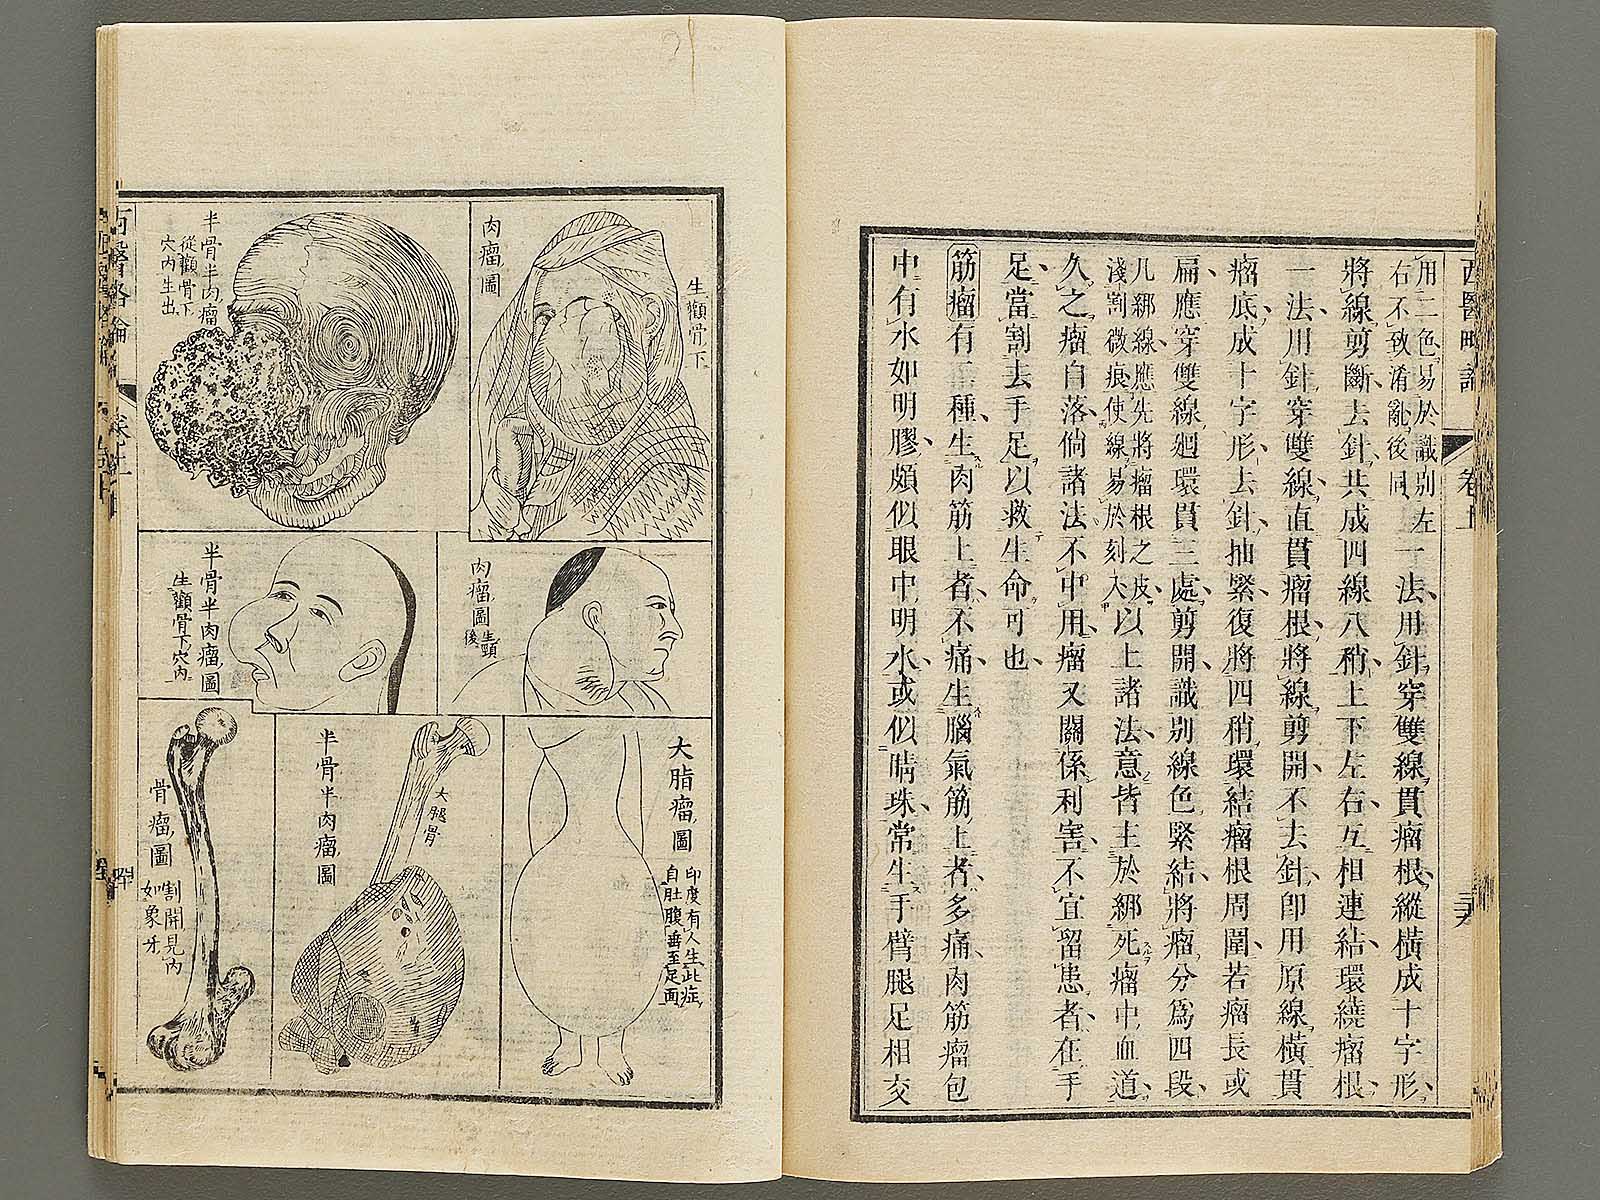 西醫略論
卷上
用二色易於識別左
右不致淆亂後同
一法用針穿雙線貫瘤根縱橫成十字形
將線剪斷去針共成四線八稍上下左右互相連結環繞瘤根
一法用針穿雙線直貫瘤根將線剪開不去針卽用原線橫貫
瘤底成十字形去針抽緊復將四稍環結瘤根周圍若瘤長或
扁應穿雙線廻環貫三處剪開識别線色緊結將瘤分爲四段
凡綁線應先將瘤根之皮
淺割微痕使線易於刻入
以上諸法意皆主於綁死瘤中血道
久之瘤自落倘諸法不中用瘤又關係利害不宜留患者在手
足當割去手足以救生命可也
筋瘤有二種生肉筋上者不痛生腦氣筋上者多痛肉筋瘤包
中有水如明膠頗似眼中明水或似睛珠常生手臂腿足相交
肉瘤圖
生顴骨下
半骨半肉瘤
從顴骨下
穴內生出
肉瘤圖
生頸
後
半骨半肉瘤圖
生顴骨下穴內
大脂瘤圖
印度有人生此症
自肚腹垂至足面
半骨半肉瘤圖
大腿骨
骨瘤圖
割開見內
如象牙
西醫略論